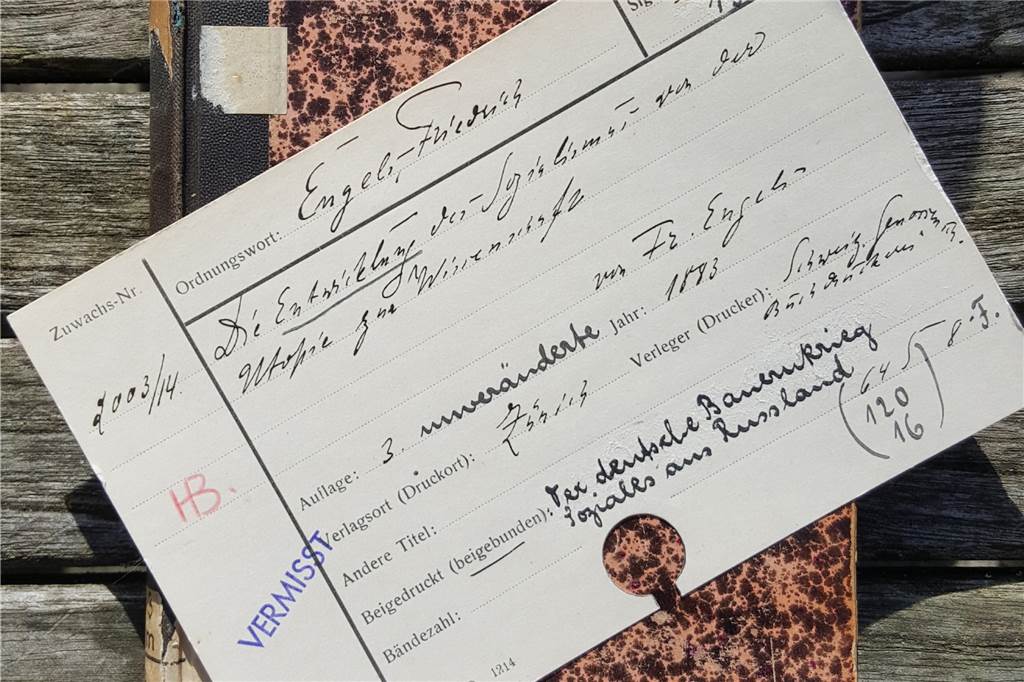 Sig
Ordnungswort: Engels, Friedrich
Zuwachs-Nr.
Die Entwicklung des Sozialismus von der
Utopie zur Wissenschaft
von Fr. Engels
2003/14.
HB.
Auflage: 3. unveränderte Jahr: 1883
Verlagsort (Druckort): Zürich Verleger (Drucker): Schweiz. Genossen.
Andere Titel:
Beigedruckt (beigebunden): Der deutsche Bauernkrieg
Soziales aus Russland
Bändezahl:
(64 S 8°. F.
120
16)
VERMISST
1214